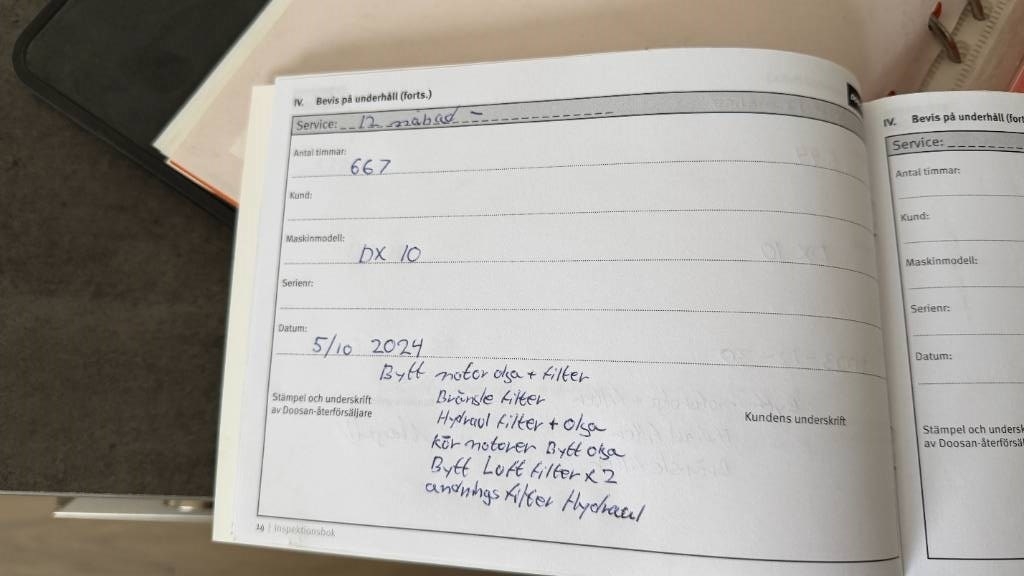 IV. Bevis på underhåll (forts.)
Service: 12 månad -
Antal timmar:
667
Kund:
Maskinmodell:
DX 10
Serienr:
Datum:
5/10 2024
Bytt motor olja + filter
Bränsle filter
Hydraul filter + olja
kör motorer Bytt olja
Bytt Luft filter x 2
andnings filter Hydraul
Stämpel och underskrift
av Doosan-återförsäljare
Kundens underskrift
24 | Inspektionsbok
IV. Bevis på underhåll (fort
Service:
Antal timmar:
Kund:
Maskinmodell:
Serienr:
Datum:
Stämpel och undersk
av Doosan-återförsälj